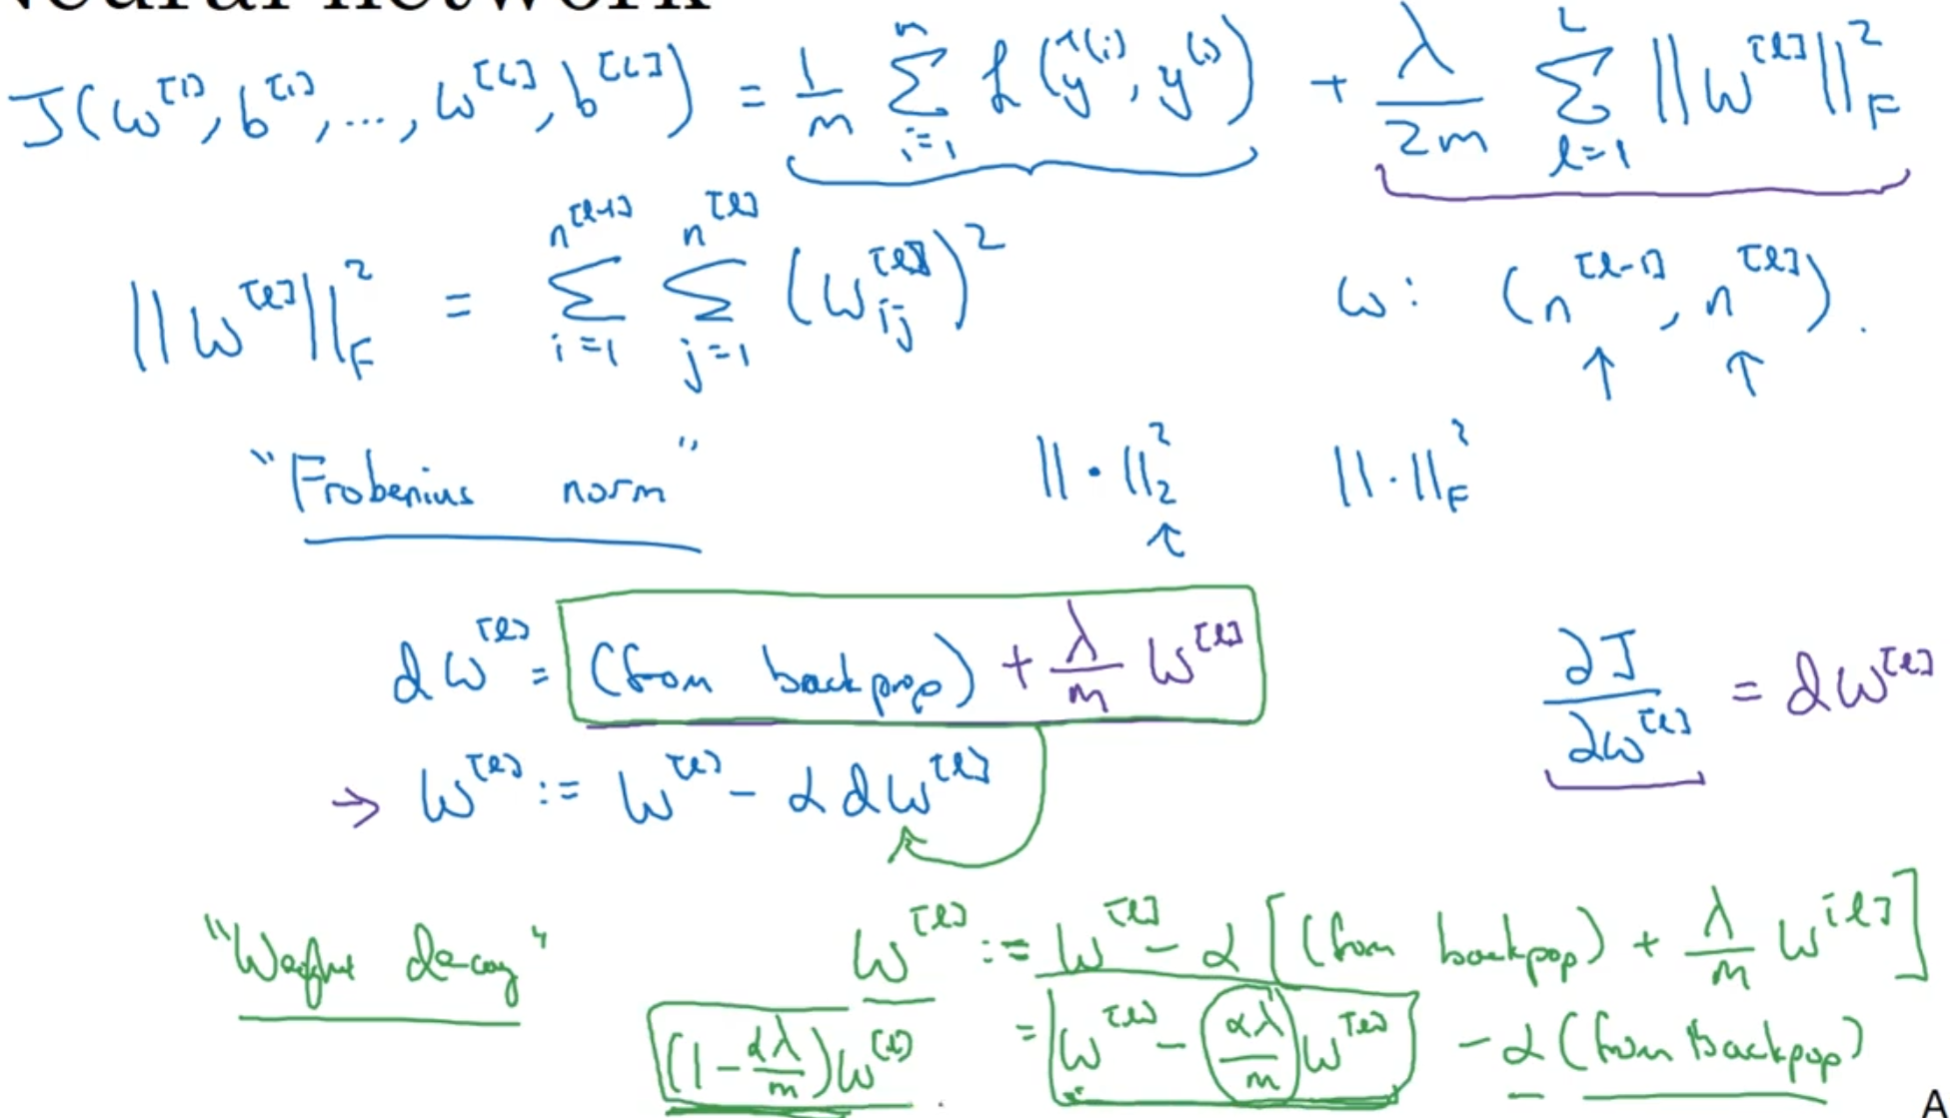 Neural network
J(w^[1], b^[1], ..., w^[L], b^[L]) = 1/m Σ_{i=1}^{m} L(ŷ^(i), y^(i)) + λ/2m Σ_{l=1}^{L} ||w^[l]||_F^2
||w^[l]||_F^2 = Σ_{i=1}^{n^[l-1]} Σ_{j=1}^{n^[l]} (w_ij^[l])^2    w: (n^[l-1], n^[l]).
"Frobenius norm"    ||·||_2^2    ||·||_F^2
dw^[l] = (from backprop) + λ/m w^[l]    ∂J/∂w^[l] = dw^[l]
→ w^[l] := w^[l] - α dw^[l]
"Weight decay"    w^[l] := w^[l] - α [(from backpop) + λ/m w^[l]]
(1 - αλ/m) w^[l]    = w^[l] - αλ/m w^[l] - α (from backpop)
A